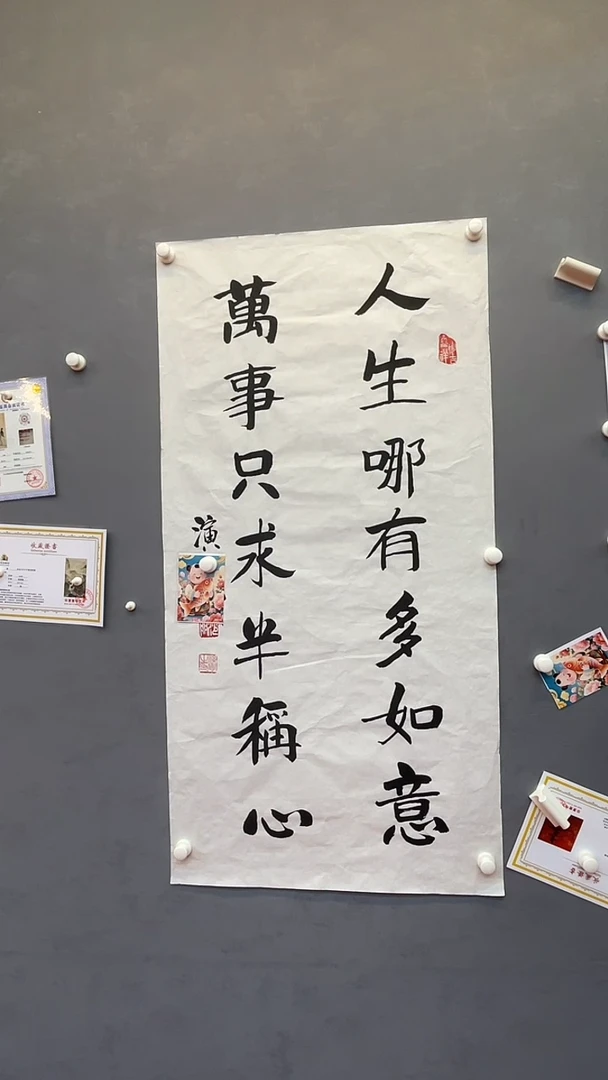 人生哪有多如意
萬事只求半稱心
演
收藏證書